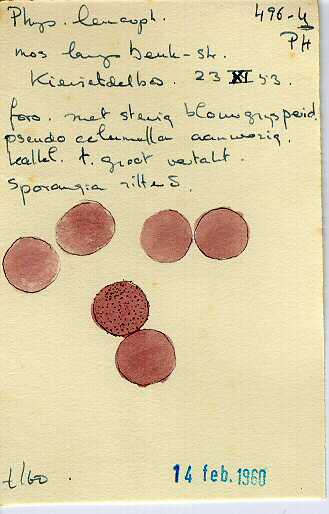 Phys. leucoph. 496-4
PH
mos langs beuk-st.
23 XI 53.
foro. met stevig blauwgrijs
pseudo columella aanwezig.
kalkel. t. groot vertakt.
Sporangia zittend.
t/60 .
14 feb. 1960